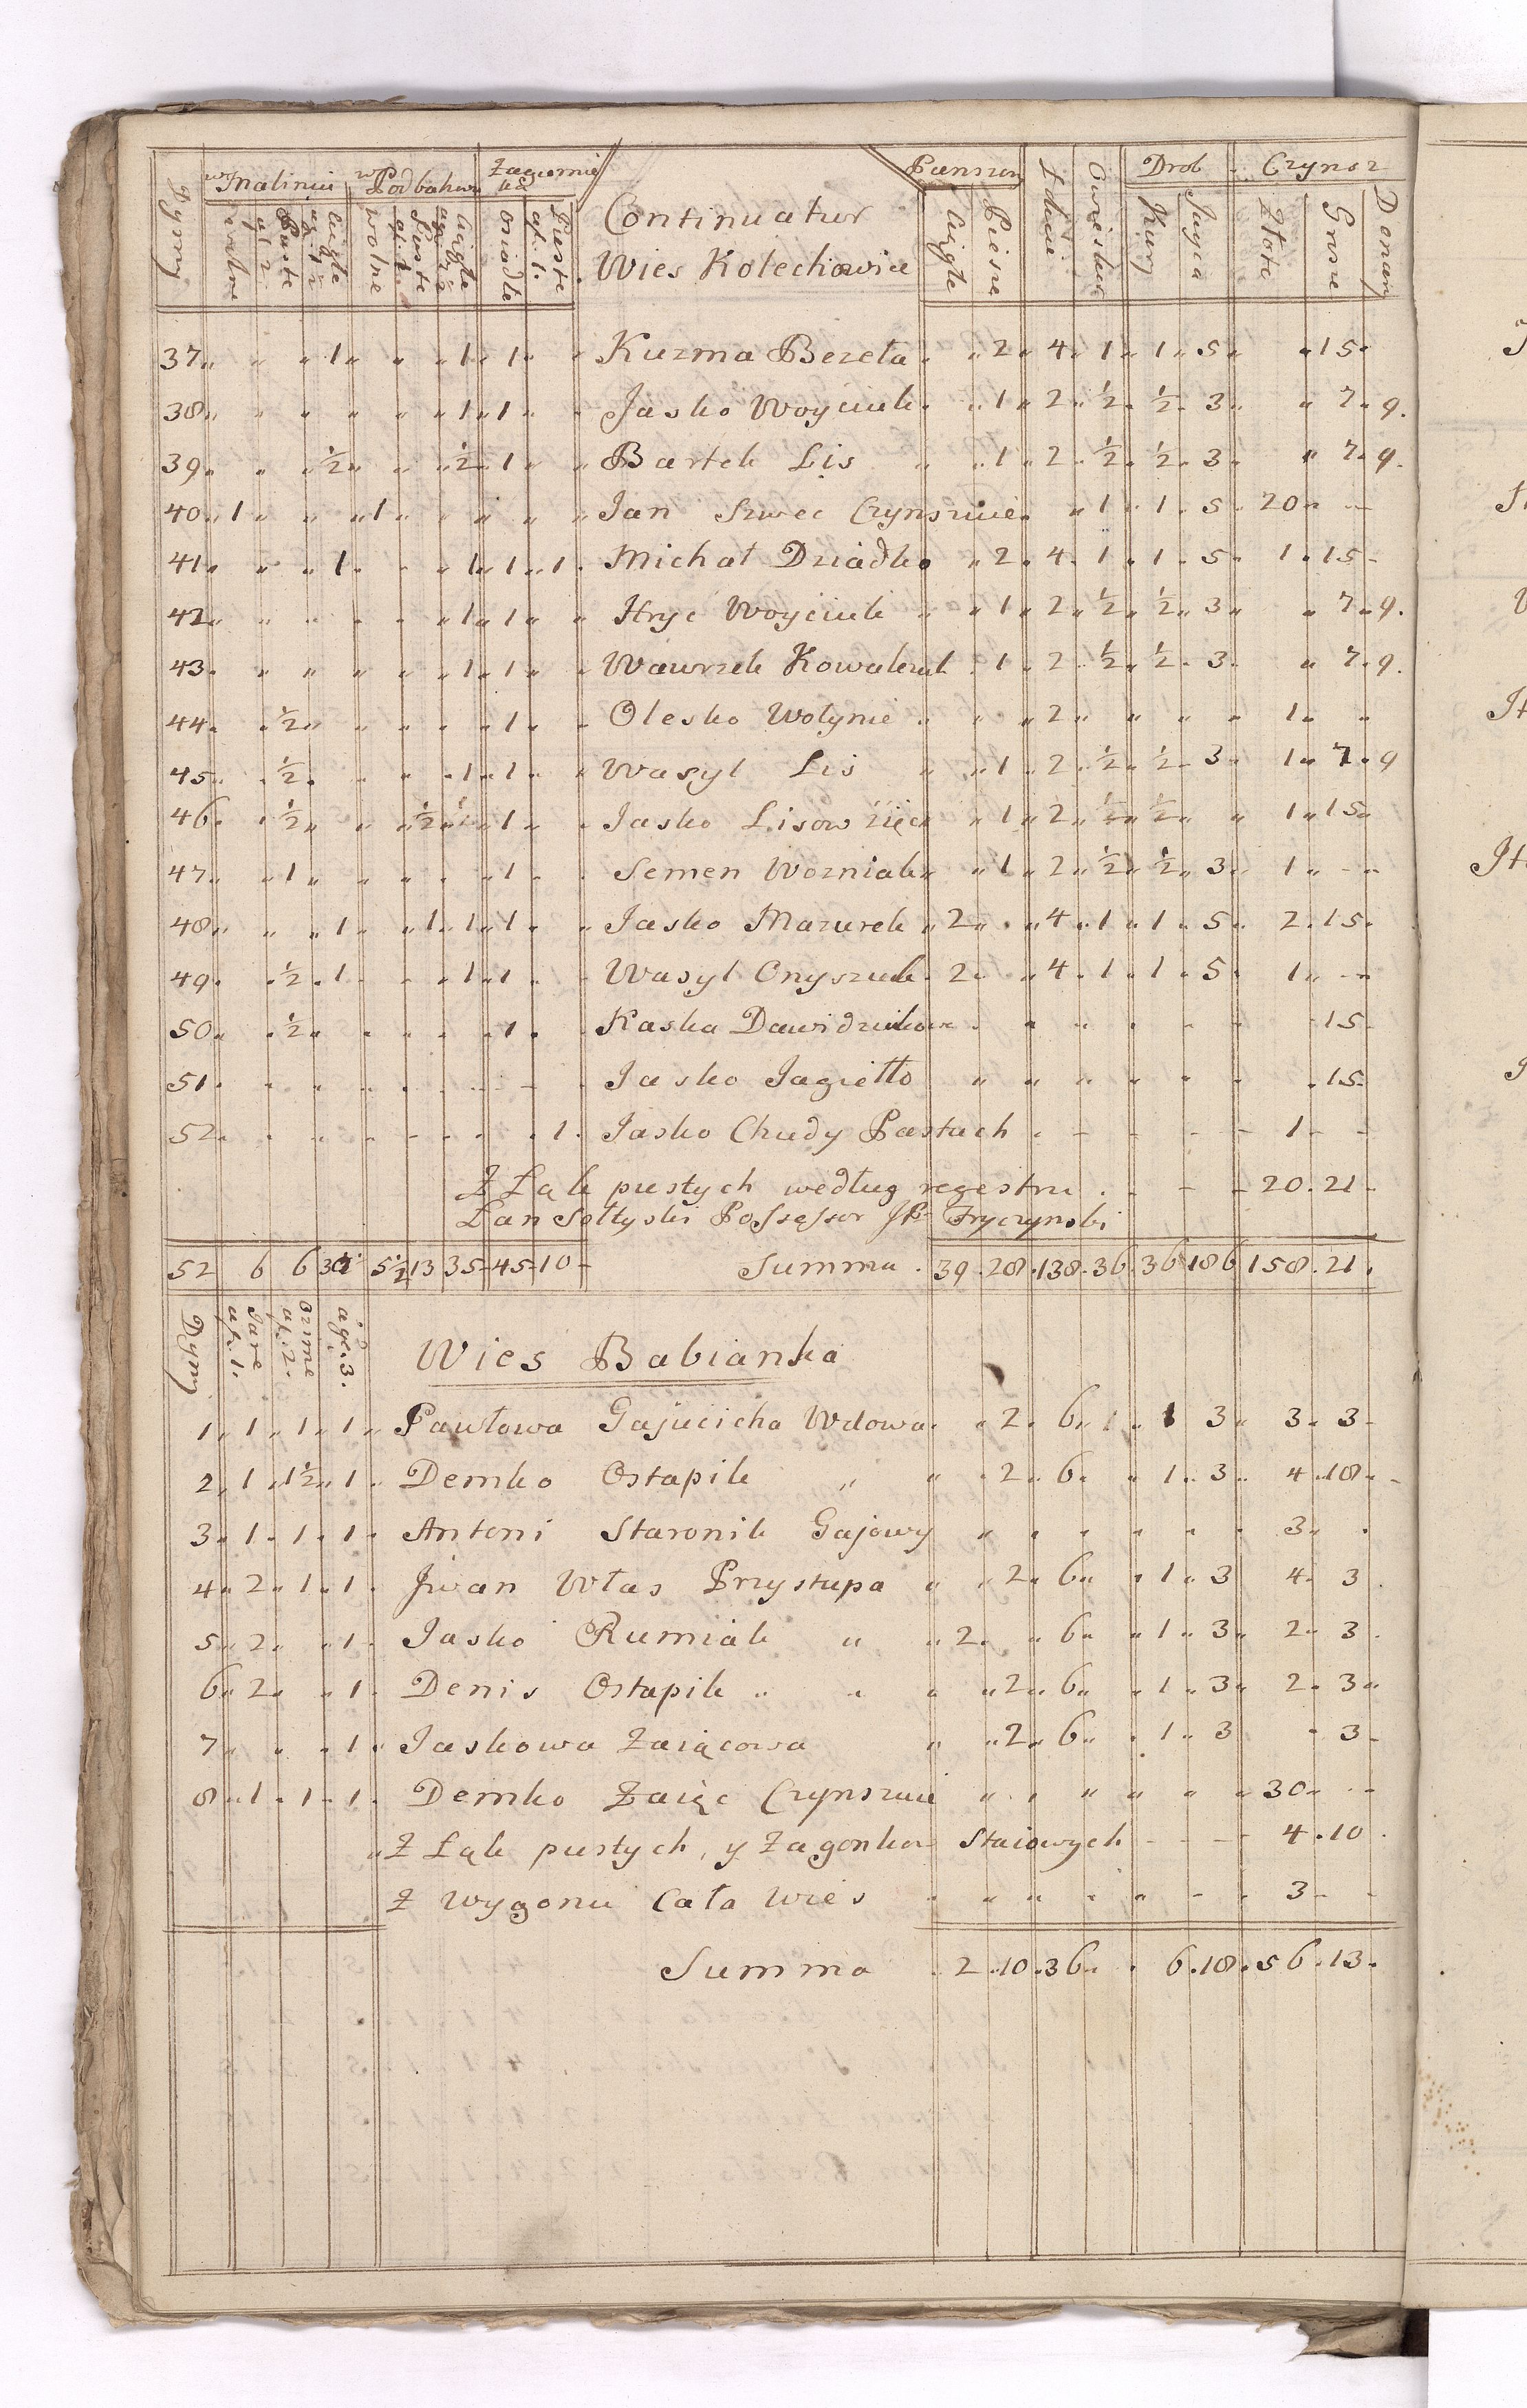 Continuatur
Wies Kolechowice
Dymy wolne Puste Ciągłe wolne Puste Ciągłe osiadłe Puste ap. 1. Ciągłe Piesze Drob Kury Jayca Czynsz Złote Grosze Denary
37 1 1 1 Kuzma Bezeła 2 4 1 1 5 15
38 1 1 Jasko Woyciuk 1 2 ½ ½ 3 7 9.
39 ½ ½ 1 Bartek Lis 1 2 ½ ½ 3 7 9.
40 1 1 Jan Szwec Czynszwie 1 1 5 20
41 1 1 1 1 Michał Dziadko 2 4 1 1 5 1 15
42 1 1 Hryc Woyciuk 1 2 ½ ½ 3 7 9.
43 1 1 Wawrzek Kowalczuk 1 2 ½ ½ 3 7 9.
44 ½ 1 Olesko Wołynie 2 1
45 ½ 1 1 Wasyl Lis 1 2 ½ ½ 3 1 7 9
46 ½ ½ ½ 1 Jasko 1 2 ½ ½ 1 15
47 1 1 Semen Wozniak 1 2 ½ ½ 3 1
48 1 1 1 1 Jasko Mazurek 2 4 1 1 5 2 15
49 ½ 1 1 1 Wasyl Onyszuk 2 4 1 1 5 1
50 ½ 1 Kaska Dawidzukowa 15
51 Jasko Jagiełło 15
52 1 Jasko Chudy Pastuch 1
Z Łąk pustych według regestru 20 21
Łan Sołtyski Possessor JP Fryczynski
52 6 6 5½ 13 35 45 10 Summa 39 28 138 36 36 186 158 21
Dymy Jare ap. 1. ozime ap. 2. agr. 3.
Wies Babianka
1 1 1 1 Pawłowa Gajucicha Wdowa 2 6 1 1 3 3 3
2 1 1½ 1 Demko Ostapik 2 6 1 3 4 18
3 1 1 1 Antoni Staronik Gajowy 3
4 2 1 1 Jwan Własz Przystupa 2 6 1 3 4 3
5 2 1 Jasko Rumiak 2 6 1 3 2 3
6 2 1 Denis Ostapik 2 6 1 3 2 3
7 1 Jaskowa Zaiącowa 2 6 1 3 3
8 1 1 1 Demko Zaiąc Czynszwi 30
Z Łąk pustych, y Zagonkow Staiowych 4 10
Z Wygonu Cała Wies 3
Summa 2 10 36 6 18 56 13